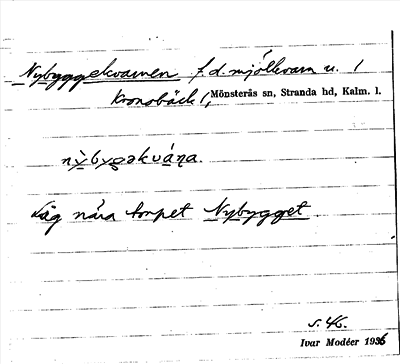 Nybyggekvarnen f.d. mjölkvarn u. 1
Kronobäck 1, Mönsterås sn, Stranda hd, Kalm. l.
nỳbygəkvána.
Låg nära torpet Nybygget
s. 46.
Ivar Modéer 1936